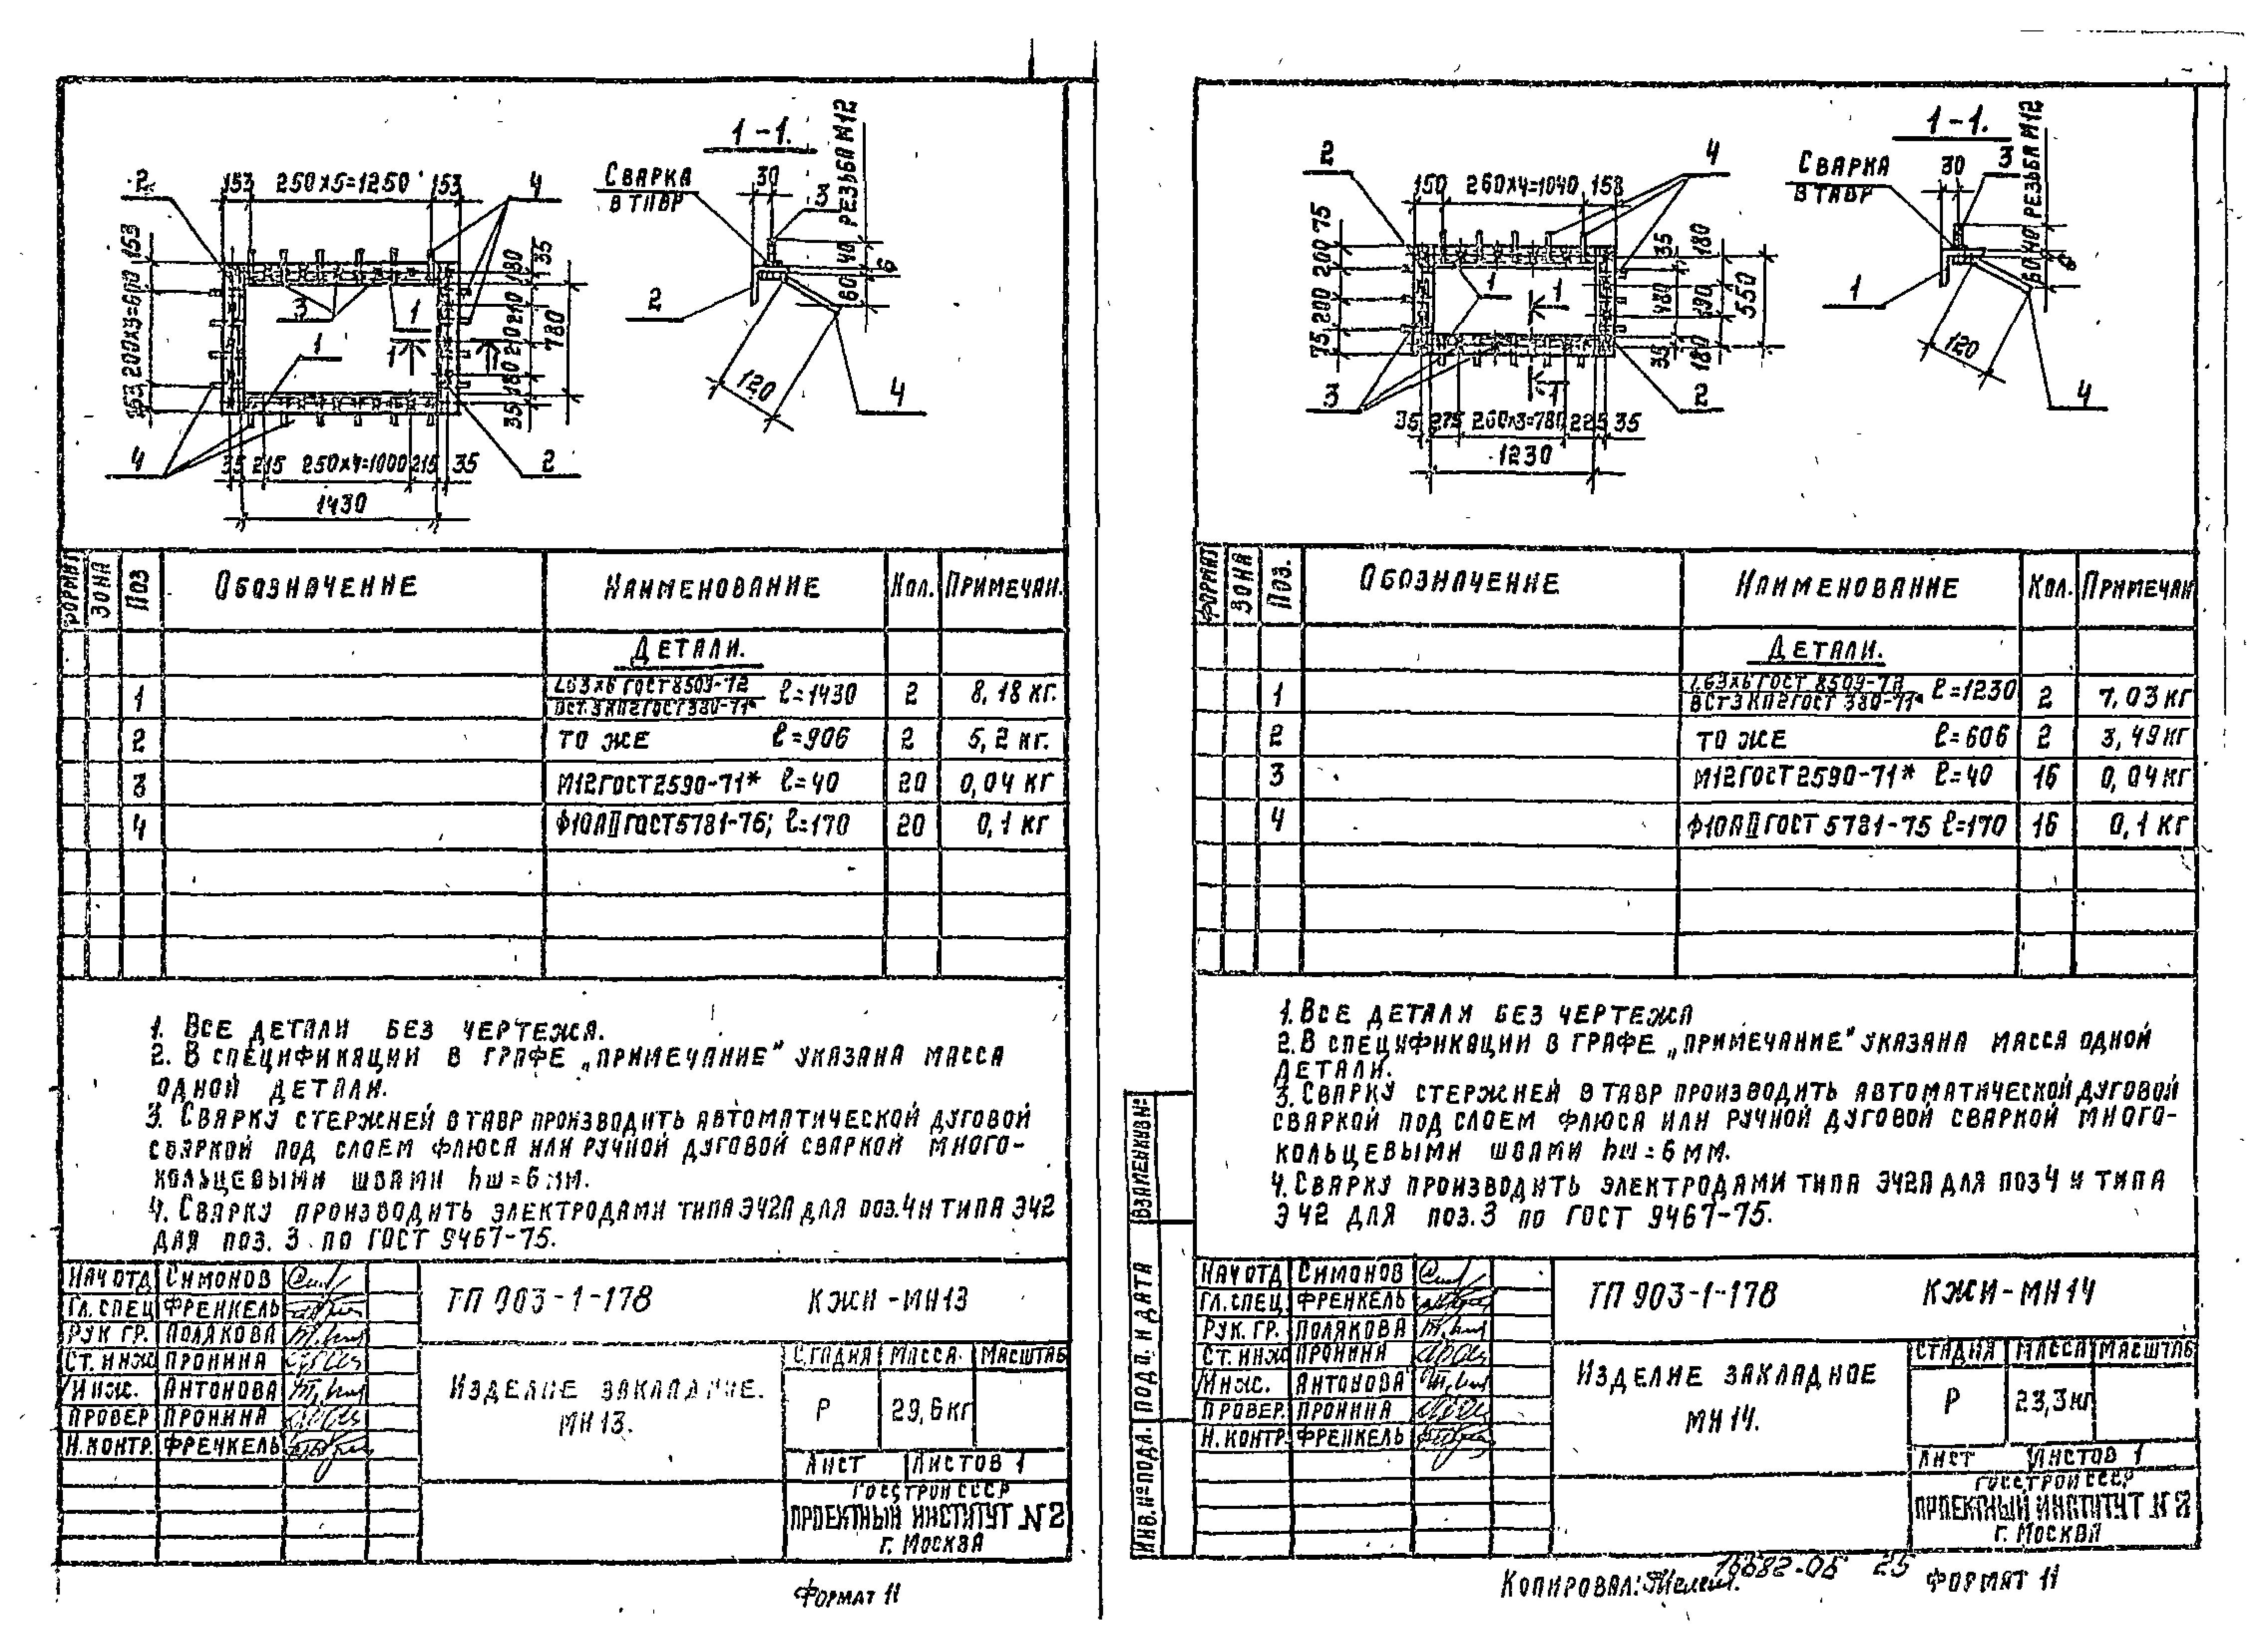 1-1.
СВАРКА
В ТАВР
30
3
40 РЕЗЬБА М12
60
6
2
4
120
2
153 250х5=1250 153
4
153 200х3=600 153
35
180
210
210
180
35
780
3
1
1
1
4
35 215 250х4=1000 215 35
2
1430
ФОРМАТ ЗОНА ПОЗ ОБОЗНАЧЕНИЕ НАИМЕНОВАНИЕ КОЛ. ПРИМЕЧАН.
ДЕТАЛИ.
1 L63х6 ГОСТ 8509-72 ℓ=1430 2 8,18 КГ.
ВСТ.3КП2ГОСТ380-71*
2 ТО ЖЕ ℓ=906 2 5,2 КГ.
3 М12ГОСТ2590-71* ℓ=40 20 0,04 КГ
4 Ф10АII ГОСТ5781-75; ℓ=170 20 0,1 КГ
1. ВСЕ ДЕТАЛИ БЕЗ ЧЕРТЕЖА.
2. В СПЕЦИФИКАЦИИ В ГРАФЕ „ПРИМЕЧАНИЕ" УКАЗАНА МАССА
ОДНОЙ ДЕТАЛИ.
3. СВАРКУ СТЕРЖНЕЙ В ТАВР ПРОИЗВОДИТЬ АВТОМАТИЧЕСКОЙ ДУГОВОЙ
СВАРКОЙ ПОД СЛОЕМ ФЛЮСА ИЛИ РУЧНОЙ ДУГОВОЙ СВАРКОЙ МНОГО-
КОЛЬЦЕВЫМИ ШВАМИ hш=6мм.
4. СВАРКУ ПРОИЗВОДИТЬ ЭЛЕКТРОДАМИ ТИПА Э42А ДЛЯ ПОЗ.4 И ТИПА Э42
ДЛЯ ПОЗ. 3 ПО ГОСТ 9467-75.
НАЧ ОТД СИМОНОВ
ГЛ. СПЕЦ ФРЕНКЕЛЬ
РУК ГР. ПОЛЯКОВА
СТ. ИНЖ ПРОНИНА
ИНЖ. АНТОНОВА
ПРОВЕР ПРОНИНА
Н.КОНТР. ФРЕНКЕЛЬ
ТП 903-1-178 КЖИ-МН13
ИЗДЕЛИЕ ЗАКЛАДНОЕ.
МН13.
СТАДИЯ МАССА. МАСШТАБ
Р 29,6 кг
ЛИСТ ЛИСТОВ 1
ГОССТРОЙ СССР
ПРОЕКТНЫЙ ИНСТИТУТ №2
Г. МОСКВА
ФОРМАТ 11
1-1.
СВАРКА
В ТАВР
30
3
60 40 РЕЗЬБА М12
1
120
4
2
150 260х4=1040 158
4
75 200 200 75
35
480
35
180
190
180
550
1
1
1
3
2
35 275 260х3=780 225 35
1230
ФОРМАТ ЗОНА ПОЗ. ОБОЗНАЧЕНИЕ НАИМЕНОВАНИЕ КОЛ. ПРИМЕЧАН
ДЕТАЛИ.
1 L63х6 ГОСТ 8509-72 ℓ=1230 2 7,03 КГ
ВСТ3КП2ГОСТ 380-71*
2 ТО ЖЕ ℓ=606 2 3,49 КГ
3 М12ГОСТ2590-71* ℓ=40 16 0,04 КГ
4 Ф10АII ГОСТ 5781-75 ℓ=170 16 0,1 КГ
1. ВСЕ ДЕТАЛИ БЕЗ ЧЕРТЕЖА
2. В СПЕЦИФИКАЦИИ В ГРАФЕ „ПРИМЕЧАНИЕ" УКАЗАНА МАССА ОДНОЙ
ДЕТАЛИ.
3. СВАРКУ СТЕРЖНЕЙ В ТАВР ПРОИЗВОДИТЬ АВТОМАТИЧЕСКОЙ ДУГОВОЙ
СВАРКОЙ ПОД СЛОЕМ ФЛЮСА ИЛИ РУЧНОЙ ДУГОВОЙ СВАРКОЙ МНОГО-
КОЛЬЦЕВЫМИ ШВАМИ hш=6мм.
4. СВАРКУ ПРОИЗВОДИТЬ ЭЛЕКТРОДАМИ ТИПА Э42А ДЛЯ ПОЗ 4 И ТИПА
Э42 ДЛЯ ПОЗ. 3 ПО ГОСТ 9467-75.
ВЗАМЕН ИНВ №
ПОДП. И ДАТА
ИНВ. № ПОДЛ.
НАЧ ОТД СИМОНОВ
ГЛ. СПЕЦ. ФРЕНКЕЛЬ
РУК. ГР. ПОЛЯКОВА
СТ. ИНЖ ПРОНИНА
ИНЖ. АНТОНОВА
ПРОВЕР. ПРОНИНА
Н. КОНТР. ФРЕНКЕЛЬ
ТП 903-1-178 КЖИ-МН14
ИЗДЕЛИЕ ЗАКЛАДНОЕ
МН14.
СТАДИЯ МАССА МАСШТАБ
Р 23,3 кг
ЛИСТ ЛИСТОВ 1
ГОССТРОЙ СССР
ПРОЕКТНЫЙ ИНСТИТУТ №2
г. МОСКВА
КОПИРОВАЛ: 25 ФОРМАТ 11